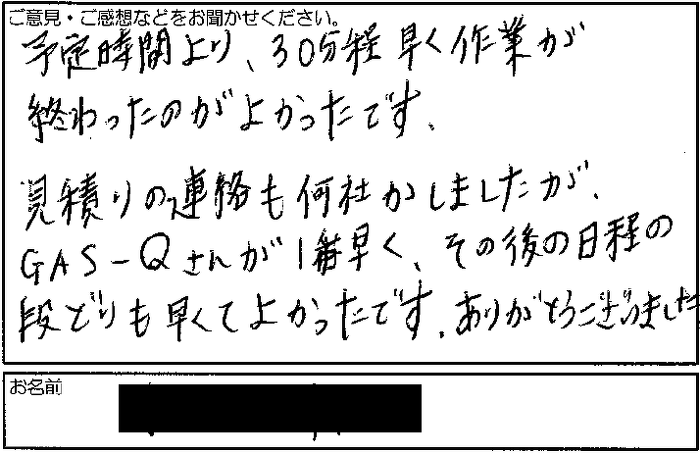 ご意見・ご感想などをお聞かせください。
予定時間より、30分程早く作業が
終わったのがよかったです。
見積りの連絡も何社かしましたが、
GAS-Qさんが1番早く、その後の日程の
段どりも早くてよかったです。ありがとうございました
お名前